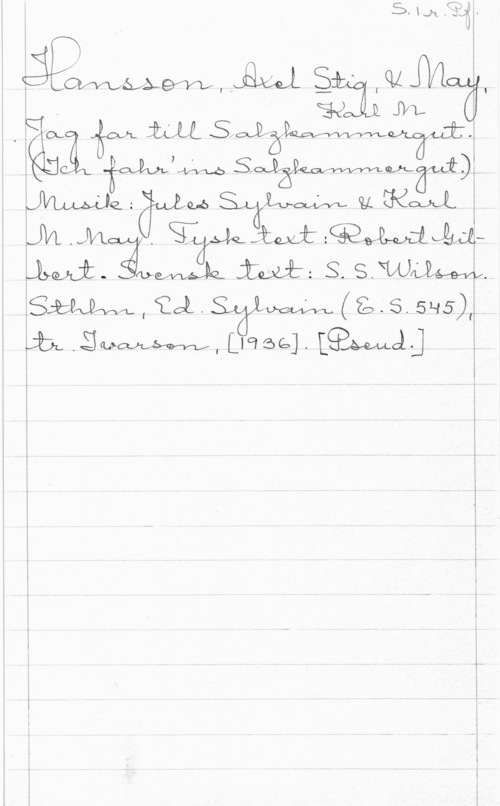 S. 1 r. Pf.
Hansson, Axel Stig, & May,
Karl M
Jag far till Salzkammergut.
(Ich fahr' ins Salzkammergut.)
Musik: Jules Sylvain & Karl
M. May. Tysk text: Robert Gil-
bert. Svensk text: S. S. Wilson.
Sthlm, Ed. Sylvain (E. S. 545),
tr. Ivarson, [1936]. [Pseud.]